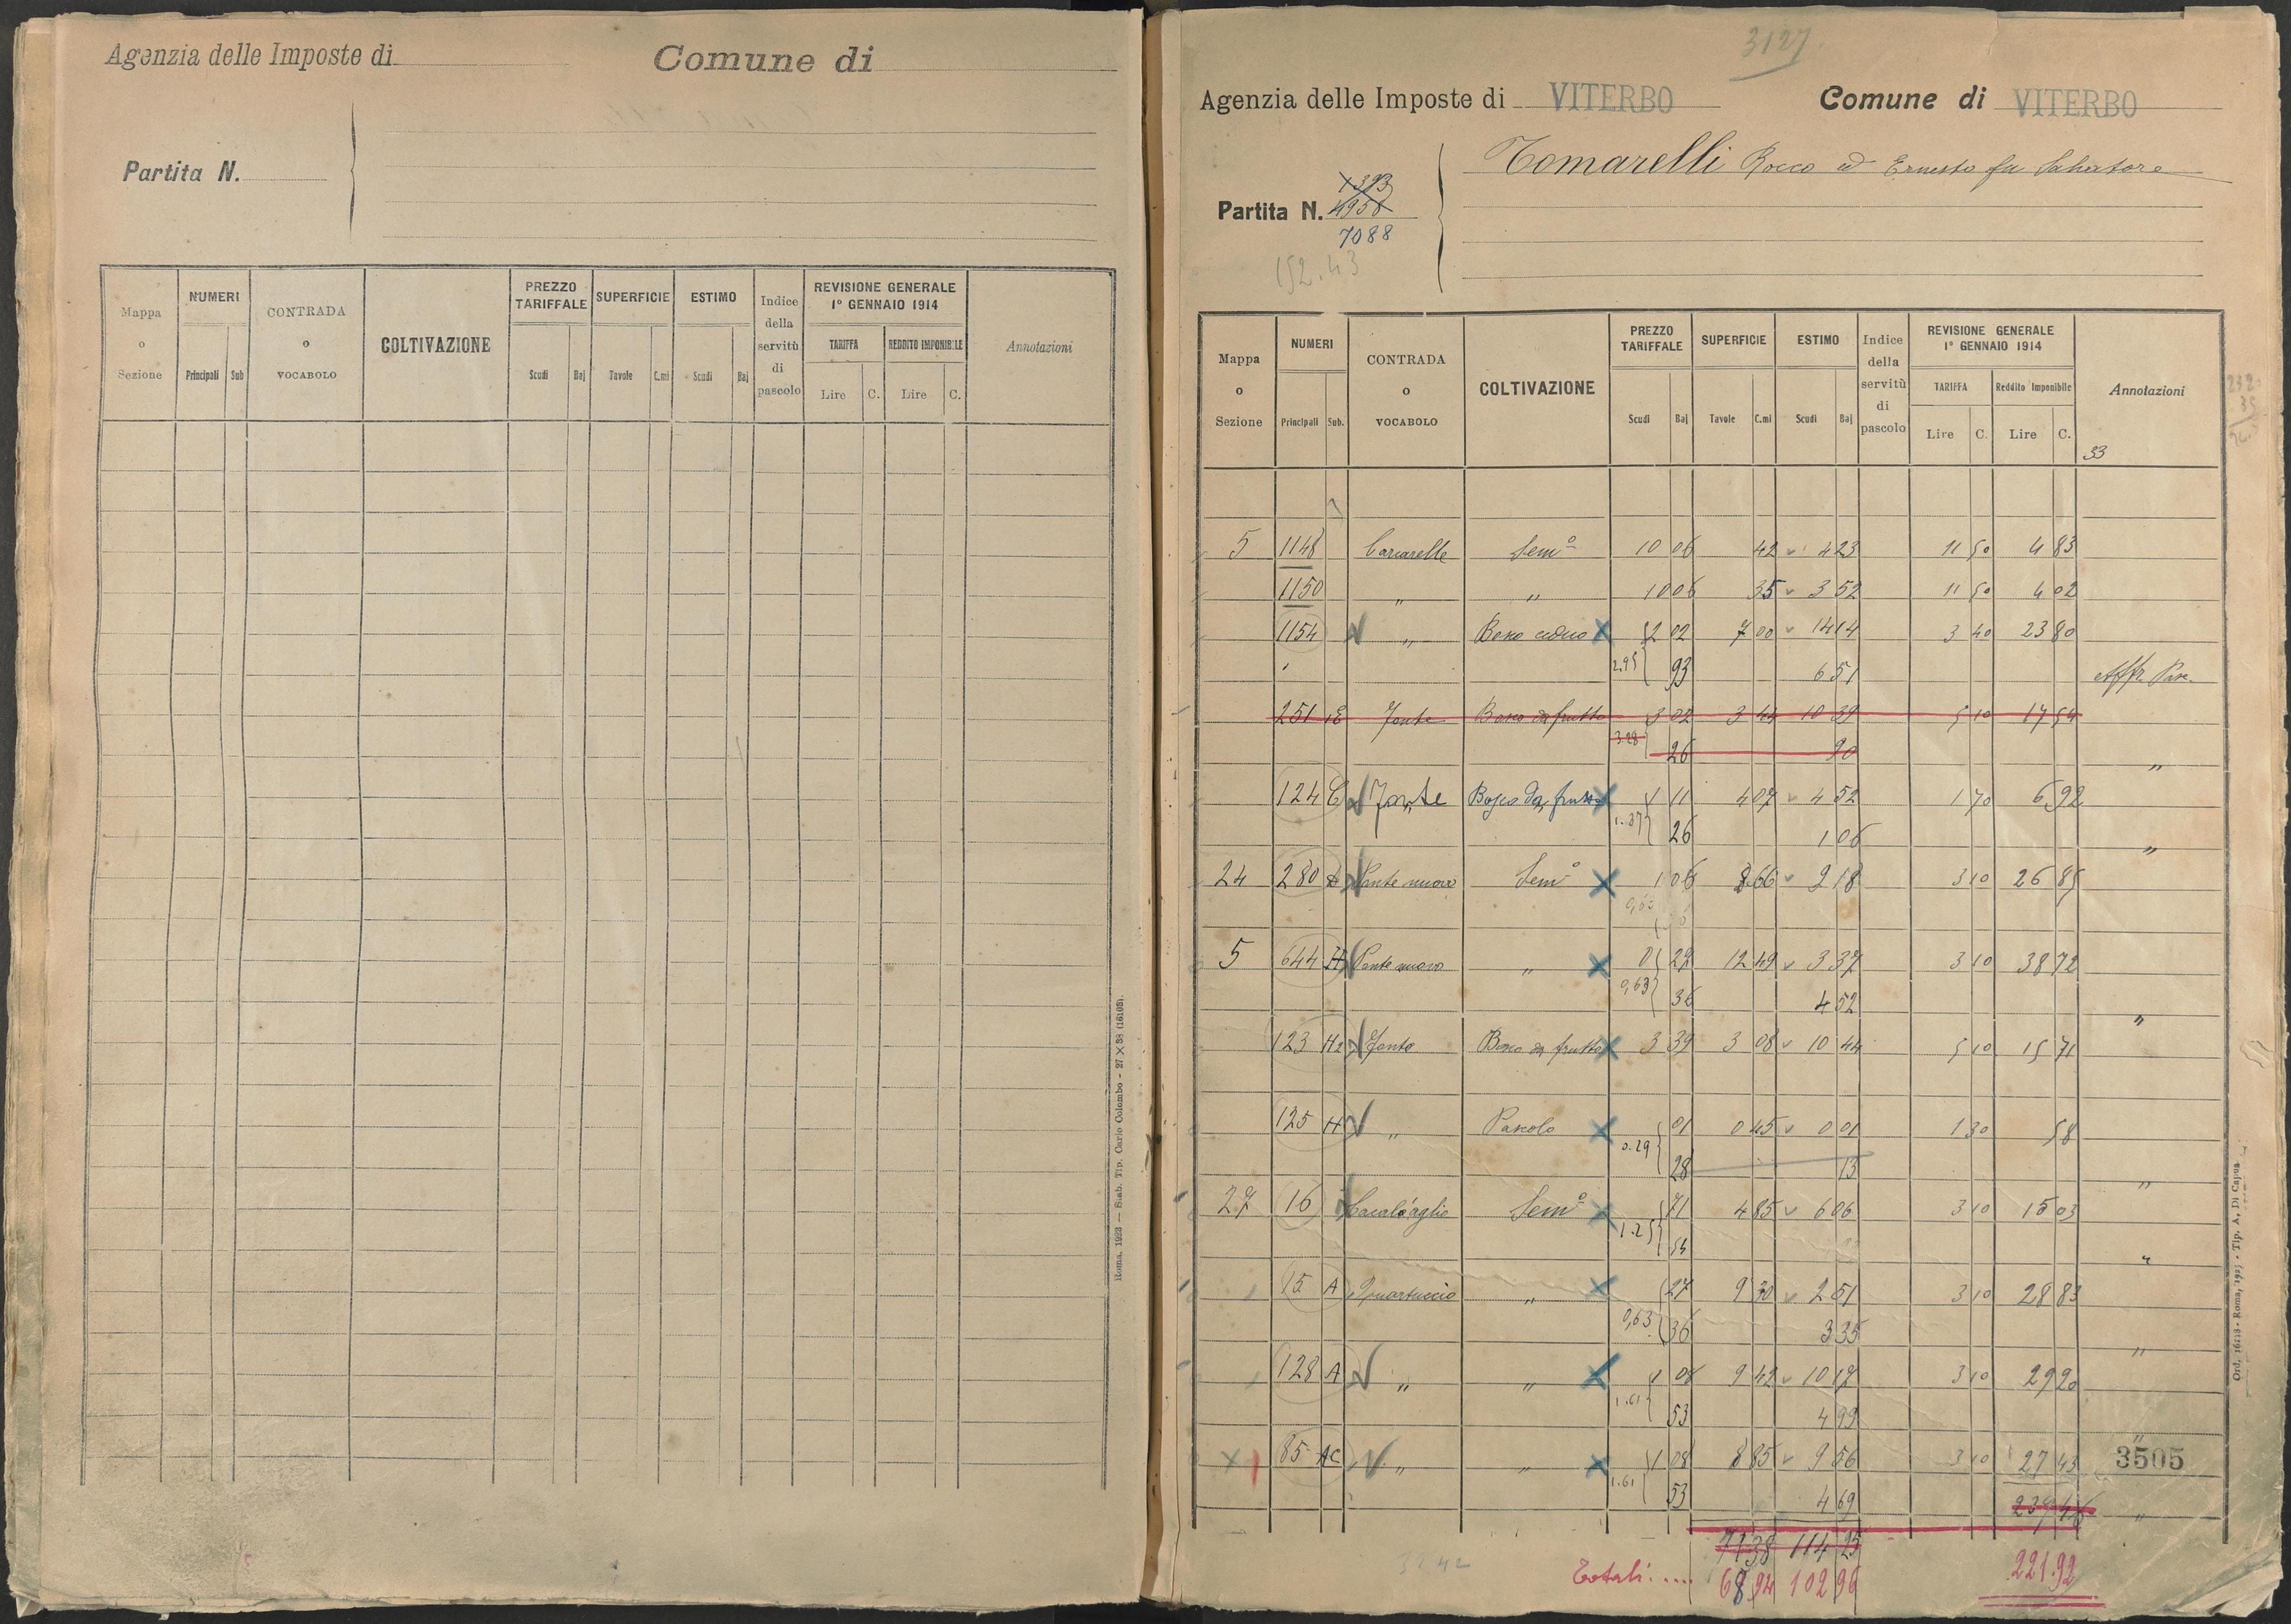 Agenzia delle Imposte di Comune di
Partita N.
Mappa o Sezione NUMERI Principali Sub CONTRADA o VOCABOLO COLTIVAZIONE PREZZO TARIFFALE Scudi Baj SUPERFICIE Tavole C.mi ESTIMO Scudi Baj Indice della servitù di pascolo REVISIONE GENERALE 1° GENNAIO 1914 TARIFFA Lire C. REDDITO IMPONIBILE Lire C. Annotazioni
Roma, 1923 — Stab. Tip. Carlo Colombo - 27 X 38 (16105).
3127
Agenzia delle Imposte di VITERBO Comune di VITERBO
Tomarelli Rocco ed Ernesto fu Salvatore
1393
Partita N. 4958
7088
152.43
Mappa o Sezione NUMERI Principali Sub. CONTRADA o VOCABOLO COLTIVAZIONE PREZZO TARIFFALE Scudi Baj SUPERFICIE Tavole C.mi ESTIMO Scudi Baj Indice della servitù di pascolo REVISIONE GENERALE 1° GENNAIO 1914 TARIFFA Lire C. Reddito Imponibile Lire C. Annotazioni
33
5 1148 Carcarelle Sem° 10 06 42 4 23 11 50 4 83
1150 " " 10 06 35 3 52 11 50 4 02
1154 " Bosco ceduo 2 02 7 00 14 14 3 40 23 80
2.95 93 6 51 Affr. Pasc.
251 1E Fonte Bosco da frutto 3 02 3 44 10 39 5 10 17 54
3.28 26 90 "
124 C Fonte Bosco da frutto 1 11 4 07 4 52 1 70 6 92
1.37 26 1 06 "
24 280 Ponte nuovo Sem° 1 06 8 66 9 18 3 10 26 85
0,63
5 644 H Ponte nuovo " 0 27 12 49 3 37 3 10 38 72
0,63 36 4 52 "
123 H2 Fonte Bosco da frutto 3 39 3 08 10 44 5 10 15 71
125 H " Pascolo 01 0 45 0 01 1 30 58
0.29 28 13 "
27 16 Sem° 71 4 85 6 06 3 10 15 03
1.25 54 "
15 A Quartuccio " 27 9 30 2 51 3 10 28 83
0,63 36 3 35 "
128 A " " 1 08 9 42 10 17 3 10 29 20
1.61 53 4 99 "
85 AC " " 1 08 8 85 9 56 3 10 27 43 3505
1.61 53 4 69 239 46 "
71 38 114 25
32.42 Totali: .... 68 94 102 96 221.92
Ord. 16113 - Roma, 1925 - Tip. A. Di Capua